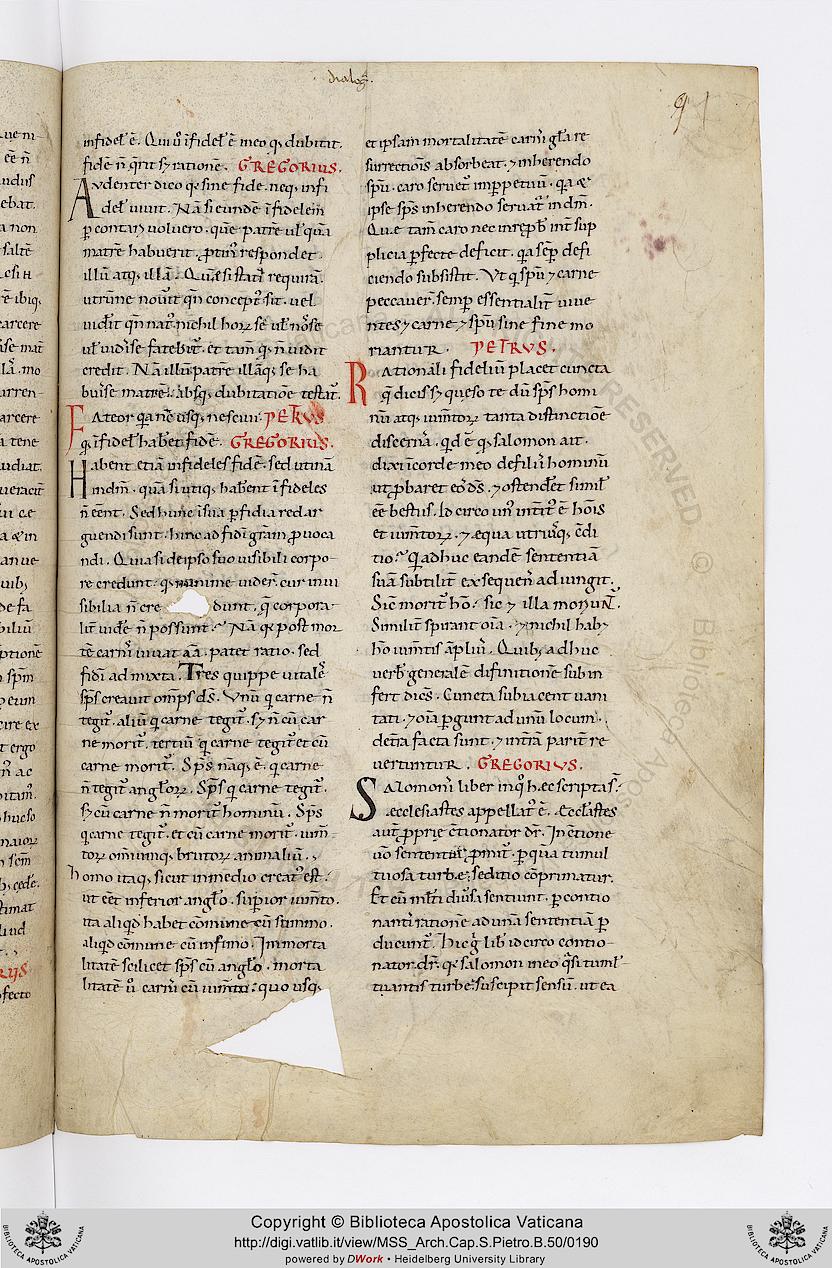 dialog̃
91
infidel̃ ẽ. Qui ů ĩfidel̃ ẽ in eo q; dubitat.
fidẽ ñ q̃rit sʒ rationẽ. GREGORIUS.
Audenter dico qͥ sine fide. neq; infi
del̃ uiuit. Nã si eundẽ ĩfidelem
ꝑ contaɲ uoluero. quẽ patrẽ ul̃ quã
matrẽ habuerit. ꝓtinꝰ respondet.
illũ atq; illã. Quẽ si statĩ requirã.
utrũne nouit qñ conceptꝰ sit. uel
uidit qñ natꝰ. nichil hoꝝ se ul̃ nosse
ul̃ uidisse fatebit̃. et tam̃ qͥ ñ uidit
credit. Nã illũ patrẽ illãq; se ha
buisse matrẽ. absq; dubitatiõe testat̃.
Fateor qͣ nc̃ usq; nesciui. PETRUS
qͥ ĩfidel̃ habet fidẽ. GREGORIUS.
Habent etiã infideles fidẽ. sed utinã
in dm̃. quã si utiq; habent ĩfideles
ñ eẽnt. Sed hinc ĩ sua ꝑfidia redar
guendi sunt. hinc ad fidĩ grãm ꝓuoca
ndi. Quia si de ipso suo uisibili corpo-
re credunt. qͥ minime uident. cur inui
sibilia ñ cre dunt. q̃ corpora-
lit̃ uidẽ ñ possunt. Nã qͥ post mor
tẽ carnĩ uiuat aĩa. patet ratio. sed
fidĩ admixta. Tres quippe uitalẽ
sp̃s creauit omp̃s ds̃. Vnũ qͥ carne ñ
tegit̃. aliũ qͥ carne tegit̃. sʒ ñ cũ car
ne morit̃. tertiũ qͥ carne tegit̃ et cũ
carne morit̃. Sp̃s nãq; ẽ. qͥ carne
ñ tegit̃ angl̃oꝝ. Sp̃s qͥ carne tegit̃.
sʒ cũ carne ñ morit̃ hominũ. Sp̃s
qͥ carne tegit̃. et cũ carne morit̃. ium̃
toꝝ omniumq; brutoꝝ animaliũ.
homo itaq; sicut in medio creatꝰ est.
ut eẽt inferior angl̃o. suꝑior ium̃to.
ita aliqͥd habet cõmune cũ summo.
aliqͥd cõmune cũ infimo. Immorta
litatẽ scilicet sp̃s cũ angl̃o. morta
litatẽ ů carnĩ cũ ium̃to. quo usq;
et ipsam mortalitatẽ carnĩ gl̃a re
surrectionis absorbeat. ⁊ inherendo
sp̃ui. caro seruet̃ in ꝑpetuũ. qͣ &
ipse sp̃s inherendo seruat̃ in dm̃.
Que tam̃ caro nec in rep̃b̃ int̃ sup
plicia ꝑfecte deficit. qͣ semꝑ defi
ciendo subsistit. Vt qͥ sp̃u ⁊ carne
peccauer̃. semꝑ essentialit̃ uiue
ntes ⁊ carne ⁊ sp̃u sine fine mo
riantur. PETRVS.
Rationali fidelium placet cuncta
q̃ dicis sʒ queso te dũ sp̃s homi
nũ atq; ium̃toꝝ tanta distinctiõe
discernã. qͥd ẽ qͥ salomon ait.
dixi in corde meo de filiis hominũ
ut ꝓbaret eos ds̃. ⁊ ostendet̃ simil̃
eẽ bestiis. Idcirco unꝰ int̃itꝰ ẽ hoĩs
et ium̃toꝝ. ⁊ equa utriusq; cõdi
tio. Qui adhuc eandẽ sententiã
suã subtilit̃ exsequens adiungit.
Sic̃ morit̃ hõ. sic ⁊ illa moriunt̃.
Similit̃ spirant oĩa. ⁊ nichil habʒ
hõ ium̃tis ãplius. Quibꝰ adhuc
uerbꝭ generalẽ difinitionẽ subin
fert dicẽs. Cuncta subiacent uani
tati. ⁊ oĩa ꝑgunt ad unũ locum.
de t̃ra facta sunt. ⁊ in t̃rã parit̃ re
uertuntur. GREGORIVS.
Salomonĩ liber in qͦ hec scripta st̃.
ecclesiastes appellatꝰ ẽ. Eccl̃astes
aut̃ ꝓprie cõtionator dr̃. In cõtione
ůo sententia ꝓmit̃. ꝑ quã tumul
tuosa turbe seditio cõprimatur.
Et cũ ml̃ti diůsa sentiunt. ꝑ contio
nantĩ rationẽ ad unã sententiã ꝑ
ducunt̃. Hic g̊ lib̃ idcirco contio-
nator dr̃. qͥ salomon in eo qͣsi tumul-
tuantis turbe. suscipit sensũ. ut ea
Copyright © Biblioteca Apostolica Vaticana
http://digi.vatlib.it/view/MSS_Arch.Cap.S.Pietro.B.50/0190
powered by DWork • Heidelberg University Library